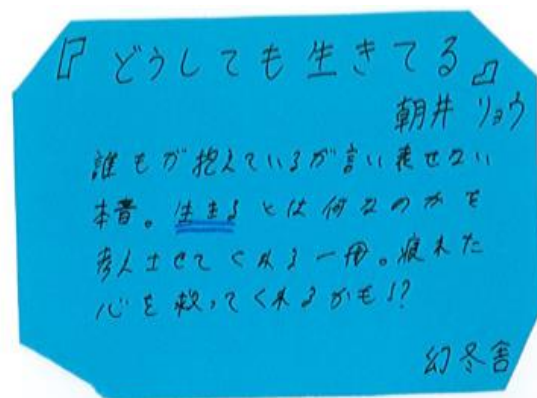 『どうしても生きてる』
朝井 リョウ
誰もが抱えているが言い表せない
本音。生きるとは何なのかを
考えさせてくれる一冊。疲れた
心を救ってくれるかも!?
幻冬舎